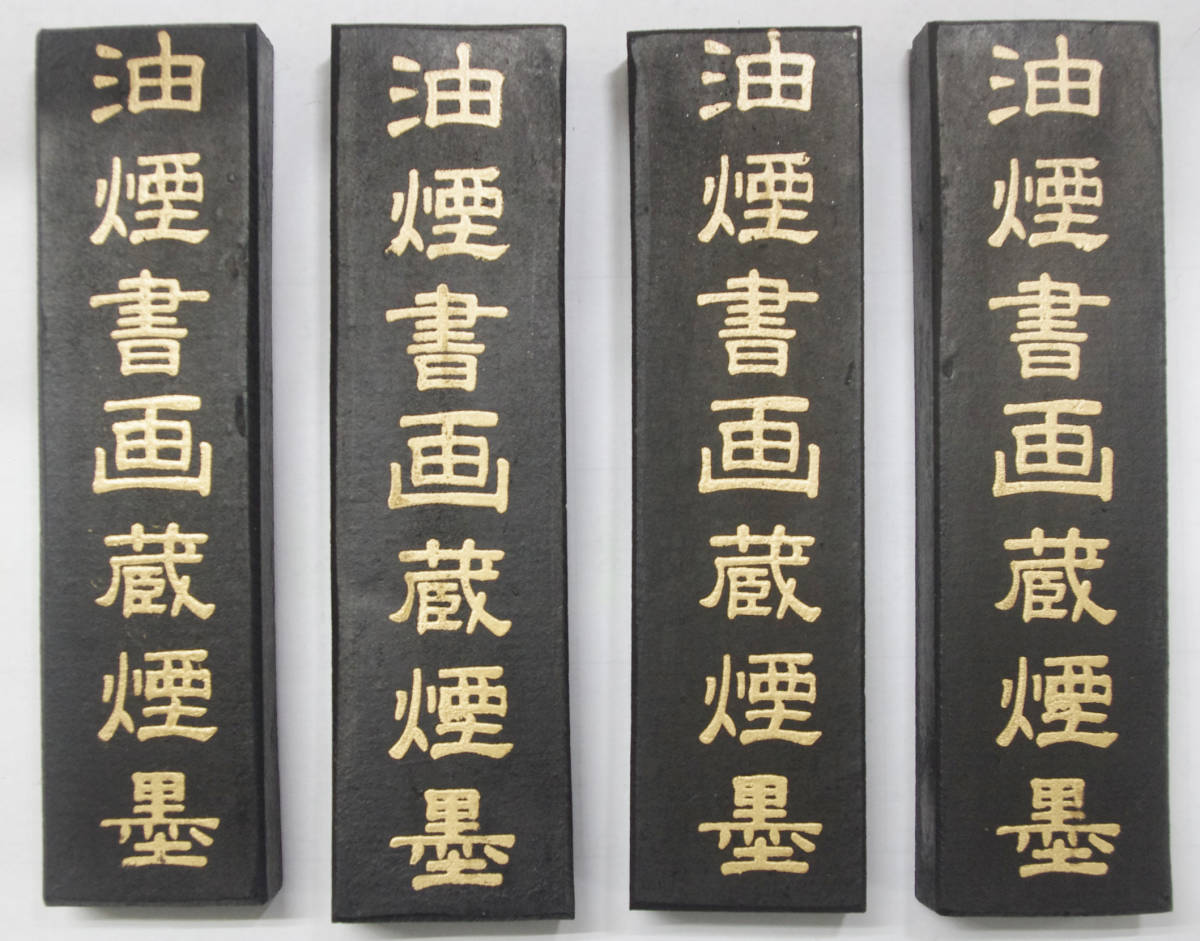 油煙書画蔵煙墨
油煙書画蔵煙墨
油煙書画蔵煙墨
油煙書画蔵煙墨